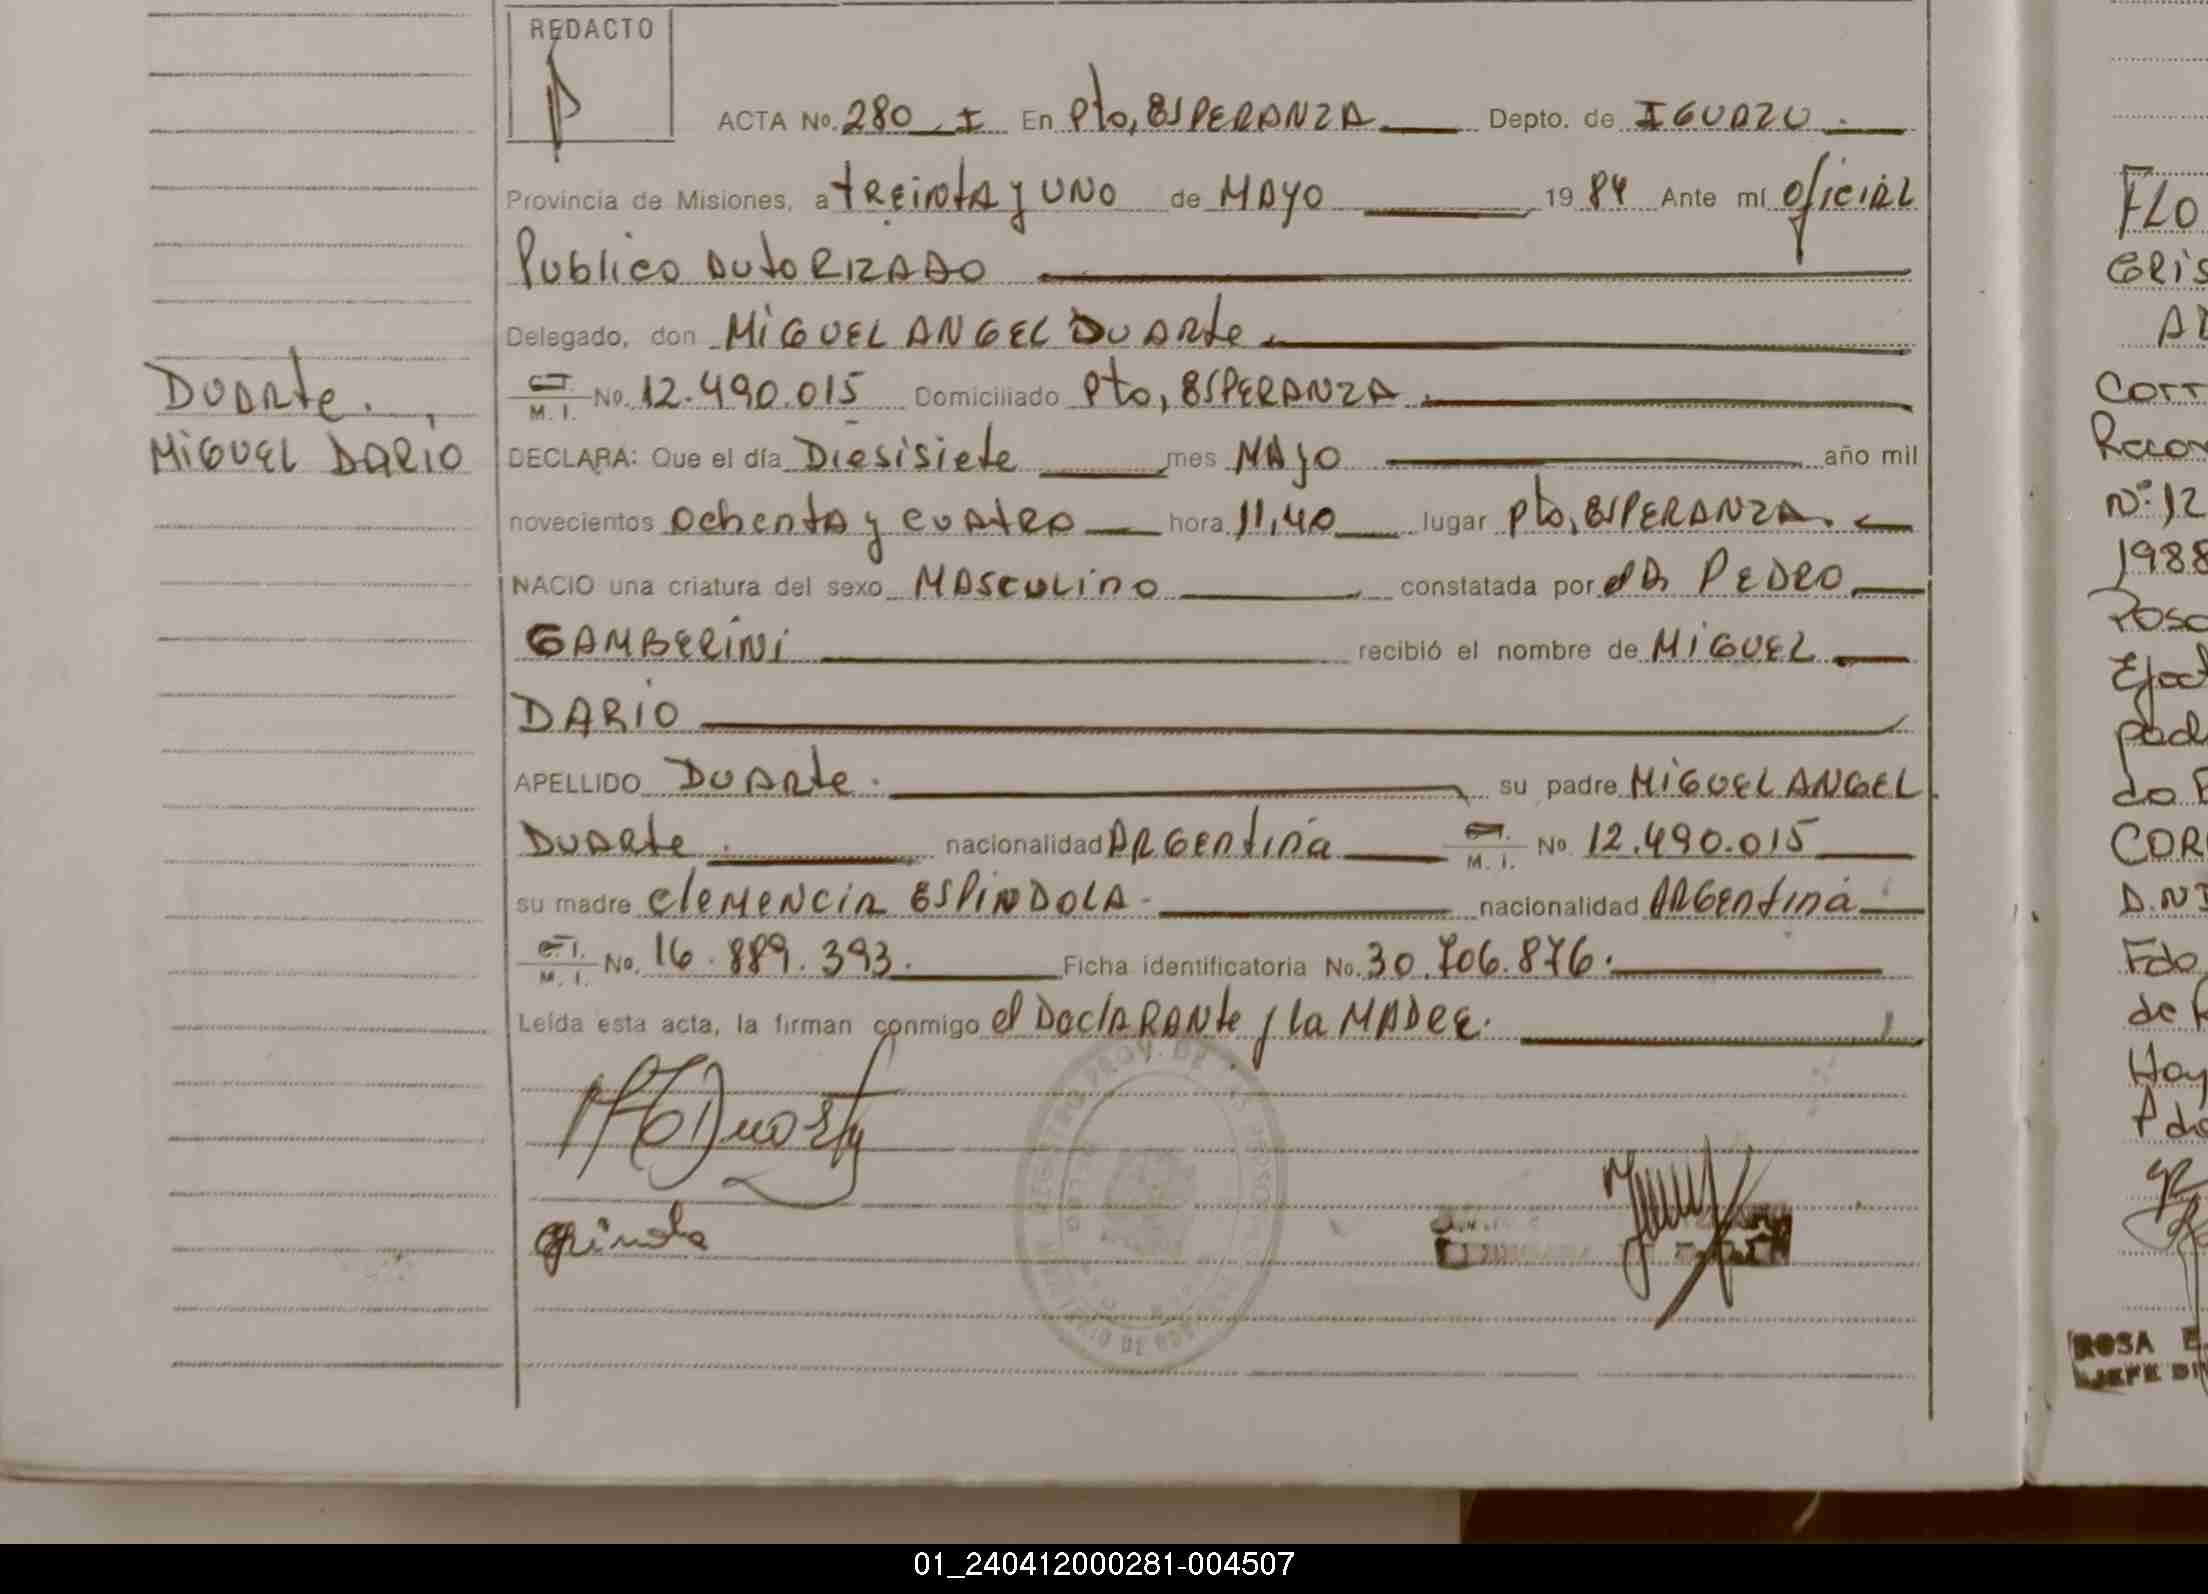 REDACTO
ACTA No. 280 I En Pto, ESPERANZA Depto. de IGUAZU.
Provincia de Misiones, a treinta y UNO de MAYO 1984 Ante mí oficial
Publico AUTORIZADO
Delegado, don MIGUEL ANGEL DUARte.
C.I. M. I. No. 12.490.015 Domiciliado Pto, ESPERANZA.
DECLARA: Que el día Diesisiete mes MAYO año mil
novecientos ochenta y cuatro hora 11,40 lugar pto, ESPERANZA.
NACIO una criatura del sexo MASCULINO constatada por el DR PEDRO
GAMBERINI recibió el nombre de MIGUEL
DARIO
APELLIDO DUARte. su padre MIGUEL ANGEL
DUARte. nacionalidad ARGentina C.I. M. I. No 12.490.015
su madre CleMENCIA ESPINDOLA- nacionalidad ARGentina
C.I. M. I. No. 16.889.393. Ficha identificatoria No. 30.706.876.
Leída esta acta, la firman conmigo el DeclARANte y la MADRE.
DUARte.
MIGUEL DARIO
FLO
CRIS
Corr
Recon
Nº 12
1988
Posa
padr
do
COR
D.NI
Fdo
de
Hay
ROSA E
JEFE DI
01_240412000281-004507